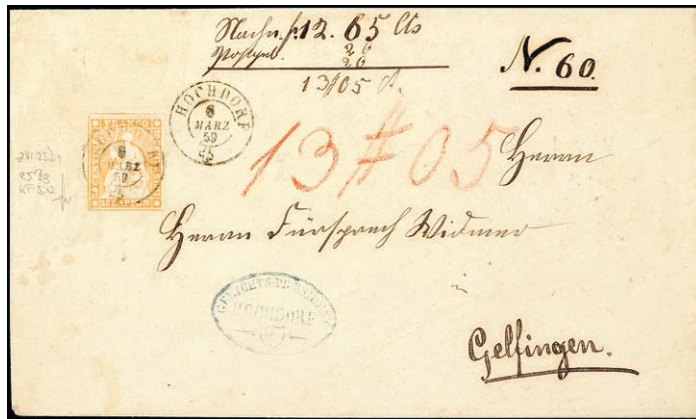 Nachn. fr. 12. 65 Cts
Postgeb. 20
20
13 # 05 Ct.
N. 60.
HOCHDORF
6
MÄRZ
59
FRANCO
6
MÄRZ
59
13 # 05
Herrn
Herrn Fürsprech Widmer
in
GERICHTS-PRÄSIDENT
HOCHDORF
Gelfingen.